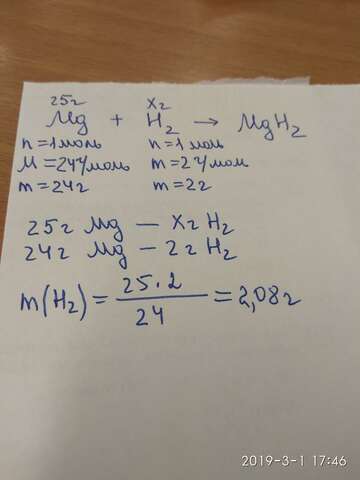 25г xг
Mg + H₂ → MgH₂
n=1моль n=1моль
M=24г/моль m=2г/моль
m=24г m=2г
25г Mg — xг H₂
24г Mg — 2г H₂
m(H₂) = 25·2 / 24 = 2,08г
2019-3-1 17:46